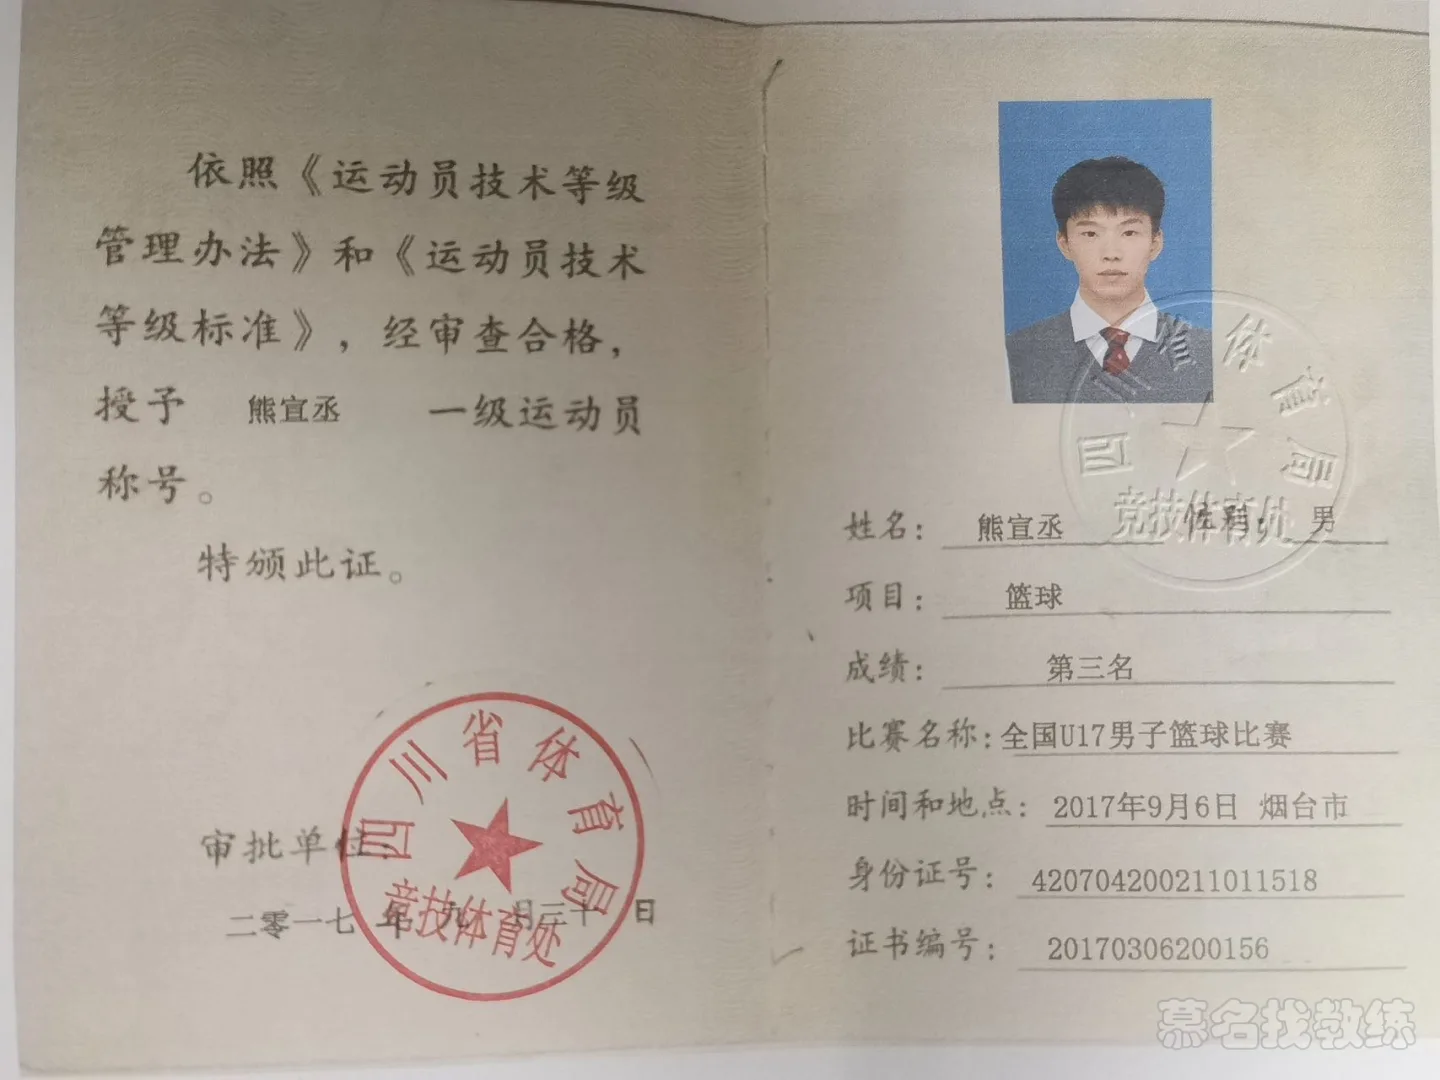 依照《运动员技术等级
管理办法》和《运动员技术
等级标准》，经审查合格，
授予 熊宣丞 一级运动员
称号。
特颁此证。
四川省体育局
竞技体育处
审批单位：
二零一七 年 九 月三十 日
四川省体育局
竞技体育处
姓名： 熊宣丞 性别： 男
项目： 篮球
成绩： 第三名
比赛名称：全国U17男子篮球比赛
时间和地点： 2017年9月6日 烟台市
身份证号： 420704200211011518
证书编号： 20170306200156
慕名找教练